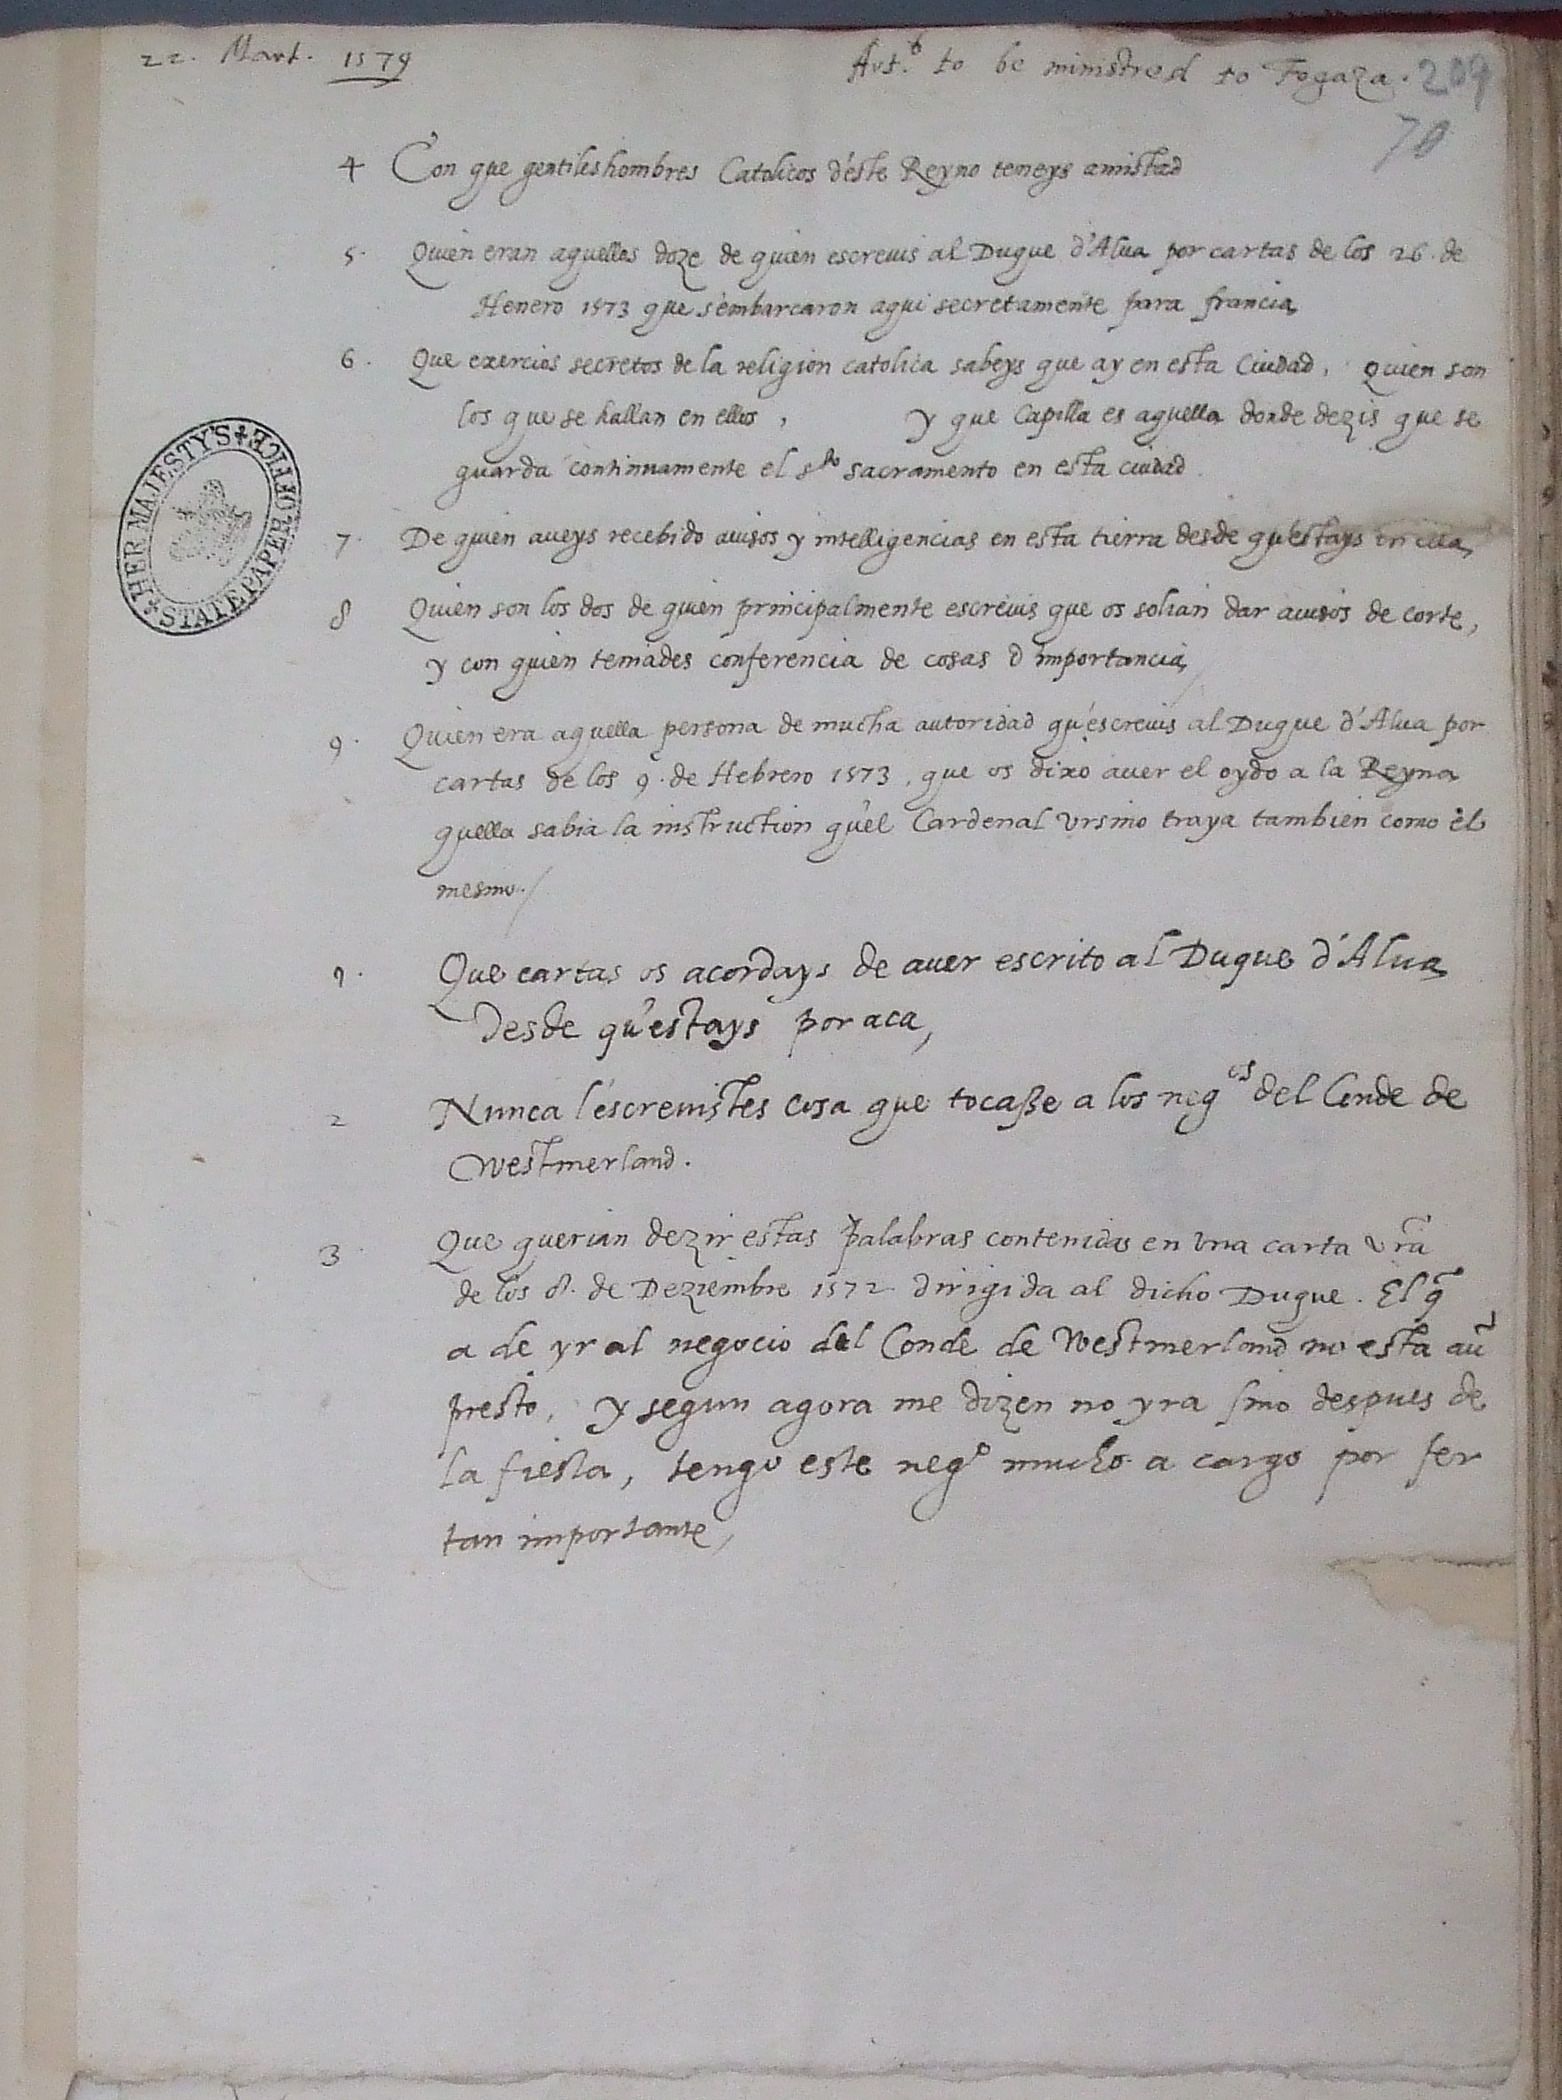 22. Mart. 1574
Art.s to be ministred to Fogaza. 209
70
4 Con que gentileshombres Catolicos d'éste Reyno teneys amistad
5. Quien eran aquellos doze de quien escreuis al Duque d'Alua por cartas de los 26. de
Henero 1573 que s'embarcaron aqui secretamente para francia
6. Que exercios secretos de la religion catolica sabeys que ay en esta Ciudad, Quien son
los que se hallan en ellos, y que Capilla es aquella donde dezis que se
guarda continuamente el sto sacramento en esta ciudad.
HER MAJESTY'S STATE PAPER OFFICE
7. De quien aueys recebido auisos y intelligencias en esta tierra desde qu'estays en ella,
8 Quien son los dos de quien principalmente escreuis que os solian dar auisos de corte,
y con quien teniades conferencia de cosas d importancia,
9. Quien era aquella persona de mucha autoridad qu'escreuis al Duque d'Alua por
cartas de los 9. de Hebrero 1573, que os dixo auer el oydo a la Reyna
quella sabia la instruction qu'el Cardenal Vrsino traya tambien como el
mesmo./
1. Que cartas os acordays de auer escrito al Duque d'Alua
desde qu'estays por aca,
2 Nunca l'escreuistes cosa que tocasse a los negos del Conde de
Westmerland.
3 Que querian dezir estas palabras contenidas en vna carta vra
de los 8. de Deziembre 1572 dirigida al dicho Duque. El q
a de yr al negocio del Conde de Westmerland no esta aũ
presto, y segun agora me dizen no yra sino despues de
la fiesta, tengo este nego mucho a cargo por ser
tan importante,